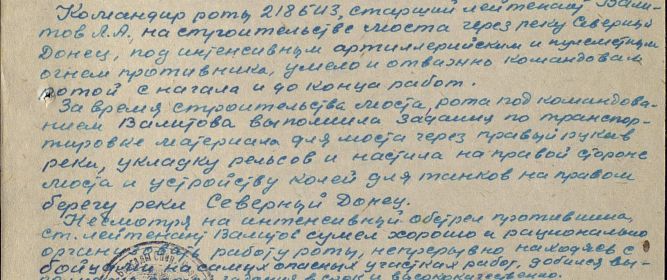 Командир роты 218 БИЗ, старший лейтенант Вами-
тов Л.А., на строительстве моста через реку Северный
Донец, под интенсивным артиллерийским и пулеметным
огнем противника, умело и отважно командовал
ротой с начала и до конца работ.
За время строительства моста, рота под командова-
нием Вамитова выполнила задания по транспор-
тировке материала для моста через правый рукав
реки, укладку рельсов и настила на правой стороне
моста и устройству колей для танков на правом
берегу реки Северный Донец.
Несмотря на интенсивный обстрел противника,
ст. лейтенант Вамитов сумел хорошо и рационально
организовать работу роты, непрерывно находясь с
бойцами на самых опасных участках работ, добился вы-
в срок и высококачественно.